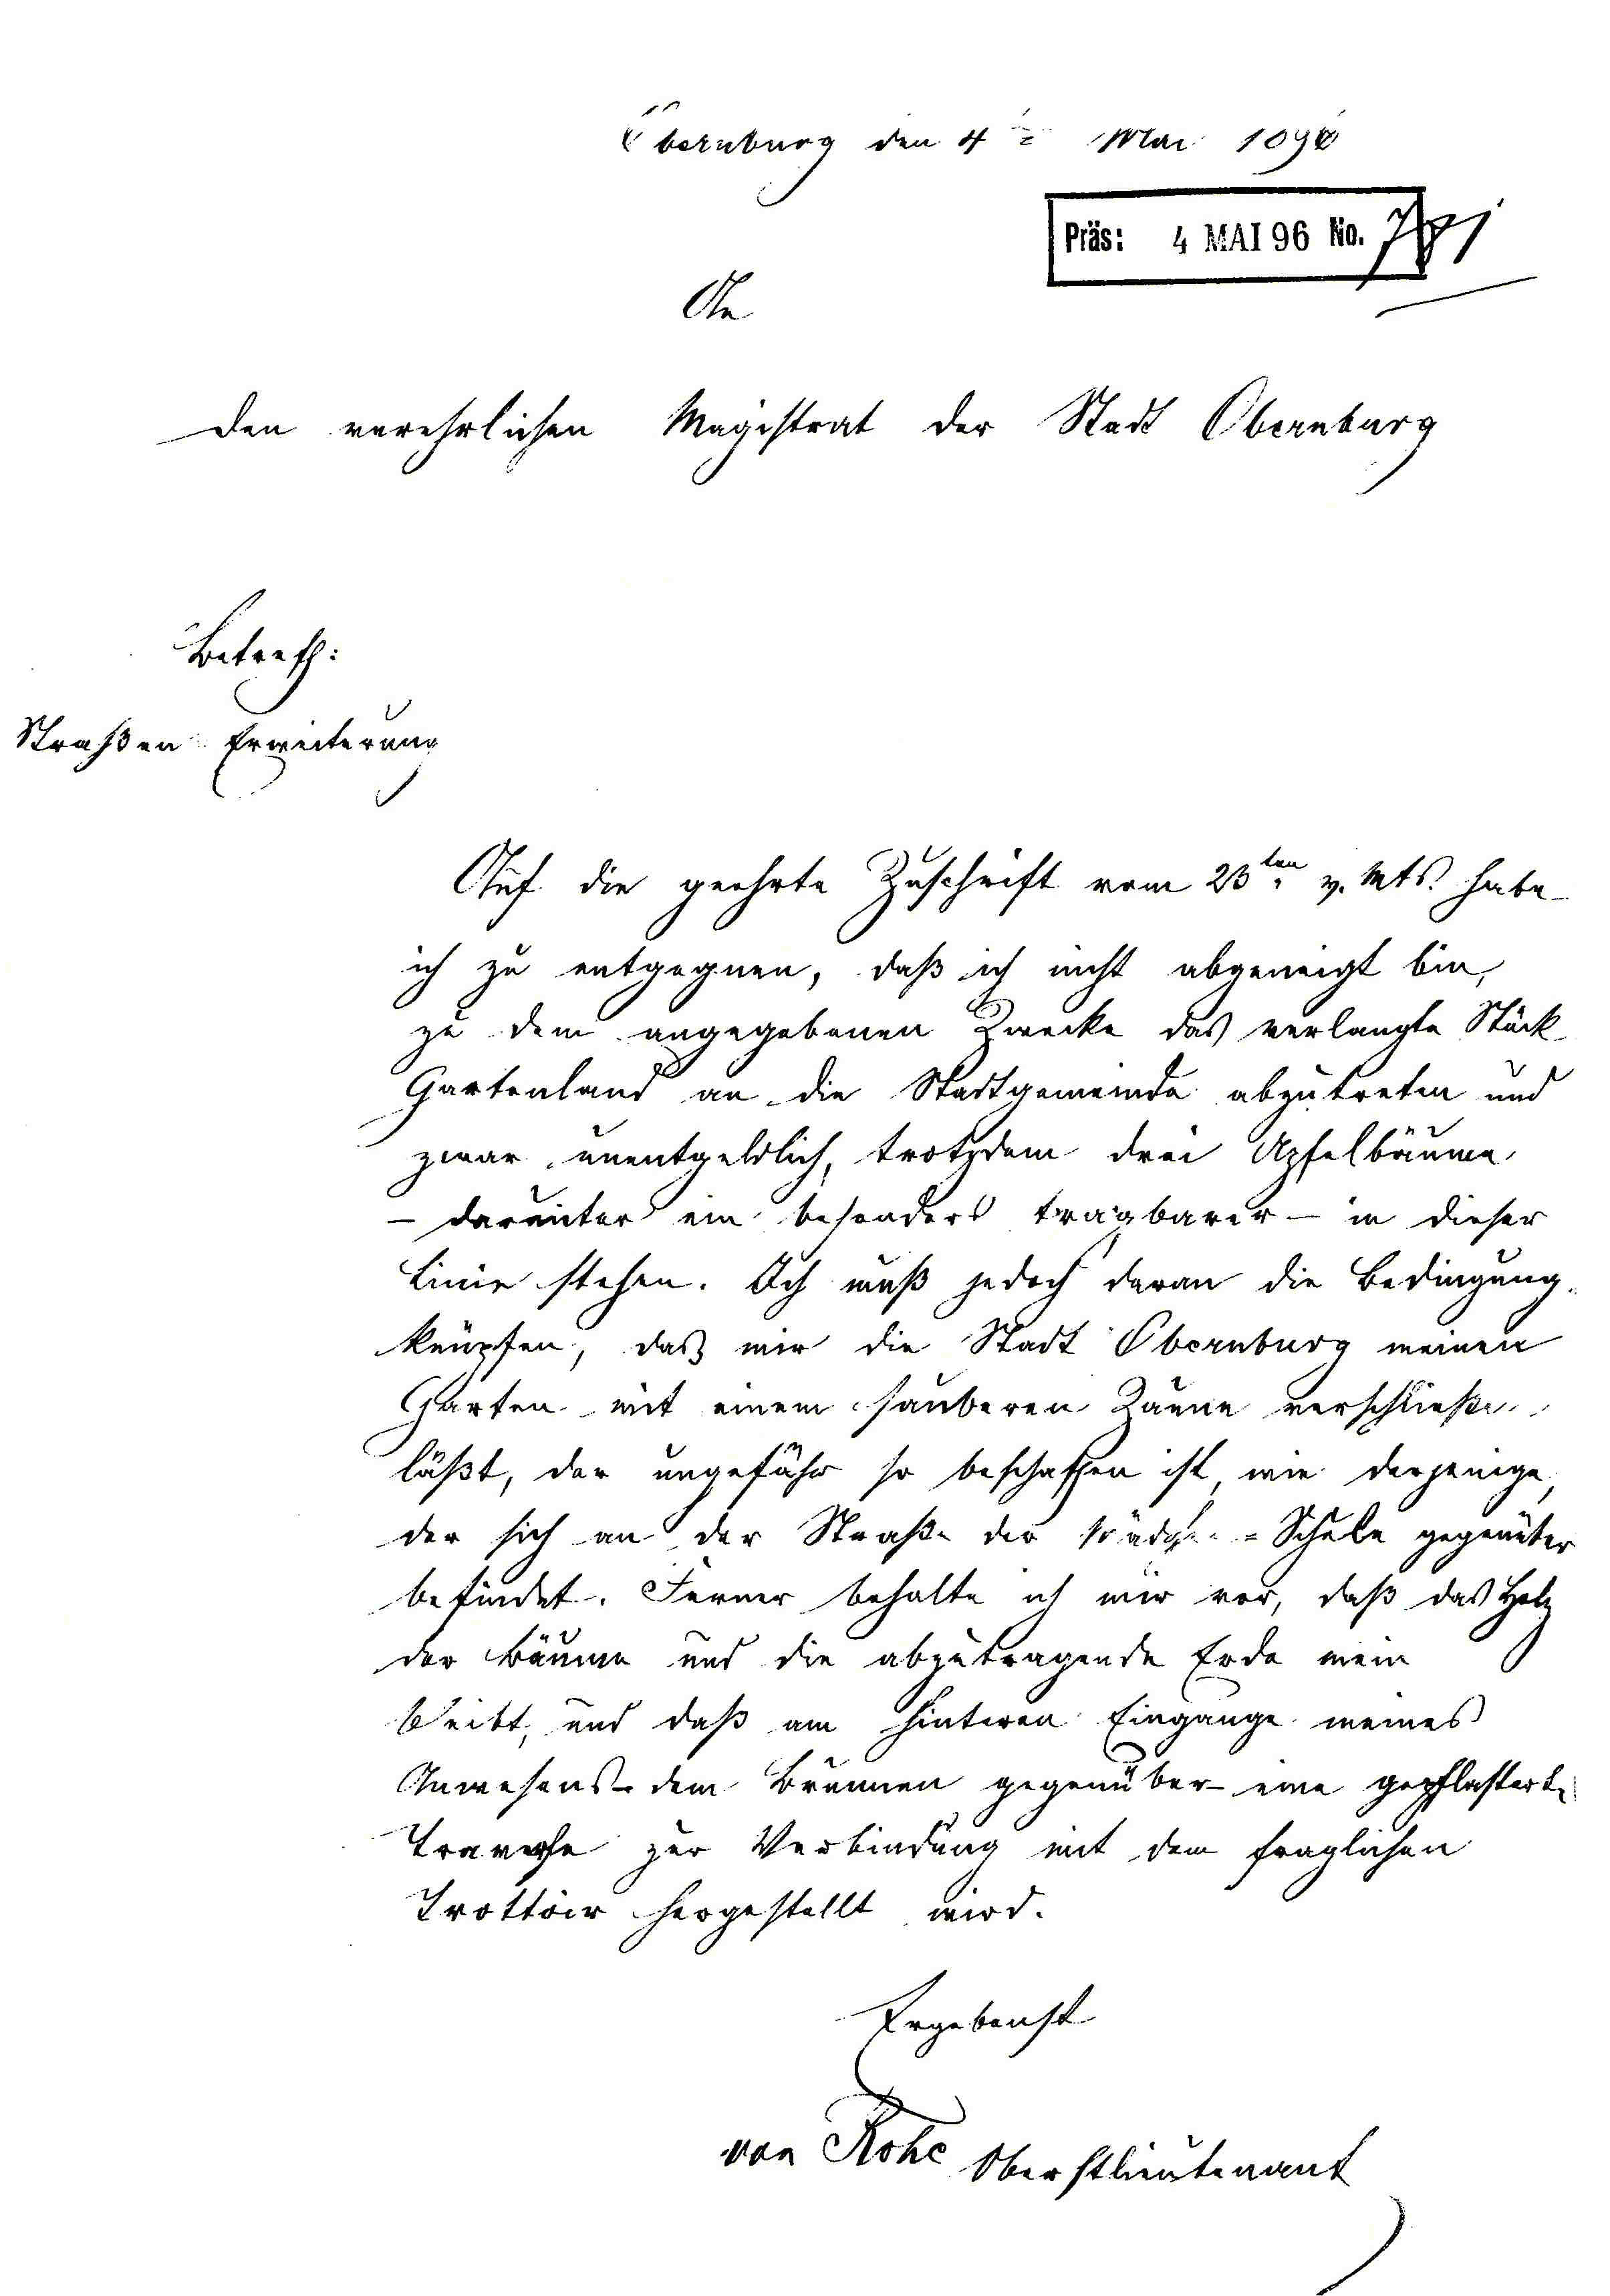 Obernburg den 4 = Mai 1896
Präs: 4 MAI 96 No. 791
An
den verehrlichen Magistrat der Stadt Obernburg
Betreff:
Straßen-Erweiterung
Auf die geehrte Zuschrift vom 23ten v. Mts. habe
ich zu entgegnen, daß ich nicht abgeneigt bin,
zu dem angegebenen Zwecke das verlangte Stück
Gartenland an die Stadtgemeinde abzutreten und
zwar unentgeldlich, trotzdem drei Apfelbäume
– darunter ein besonders tragbarer – in dieser
Linie stehen. Ich muß jedoch daran die Bedingung
knüpfen, daß mir die Stadt Obernburg meinen
Garten mit einem sauberen Zaune verschließen
läßt, der ungefähr so beschaffen ist, wie derjenige,
der sich an der Straße der Mädchen-Schule gegenüber
befindet. Ferner behalte ich mir vor, daß das Holz
der Bäume und die abzutragende Erde mein
bleibt, und daß am hinteren Eingange meines
Anwesens – dem Brunnen gegenüber – eine gepflasterte
zur Verbindung mit dem fraglichen
Trottoir hergestellt wird.
Ergebenst
von Oberstlieutenant